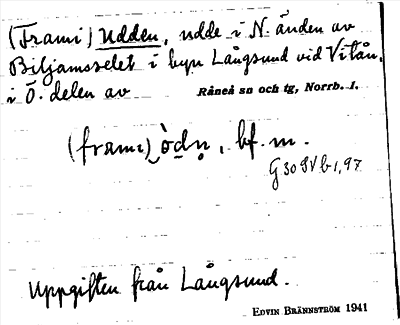 (Frami) Udden, udde i N. änden av
Biljamsselet i byn Långsund vid Vitån,
i Ö. delen av Råneå sn och tg, Norrb. l.
(framı) ò̱dṇ, bf. m.
G 30 IV b 1, 97
Uppgiften från Långsund.
EDVIN BRÄNNSTRÖM 1941